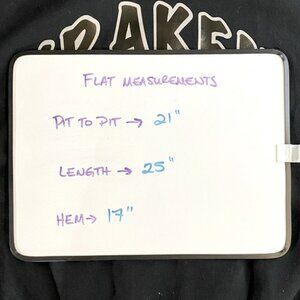 RAKE
FLAT MEASUREMENTS
PIT TO PIT → 21"
LENGTH → 25"
HEM → 17"